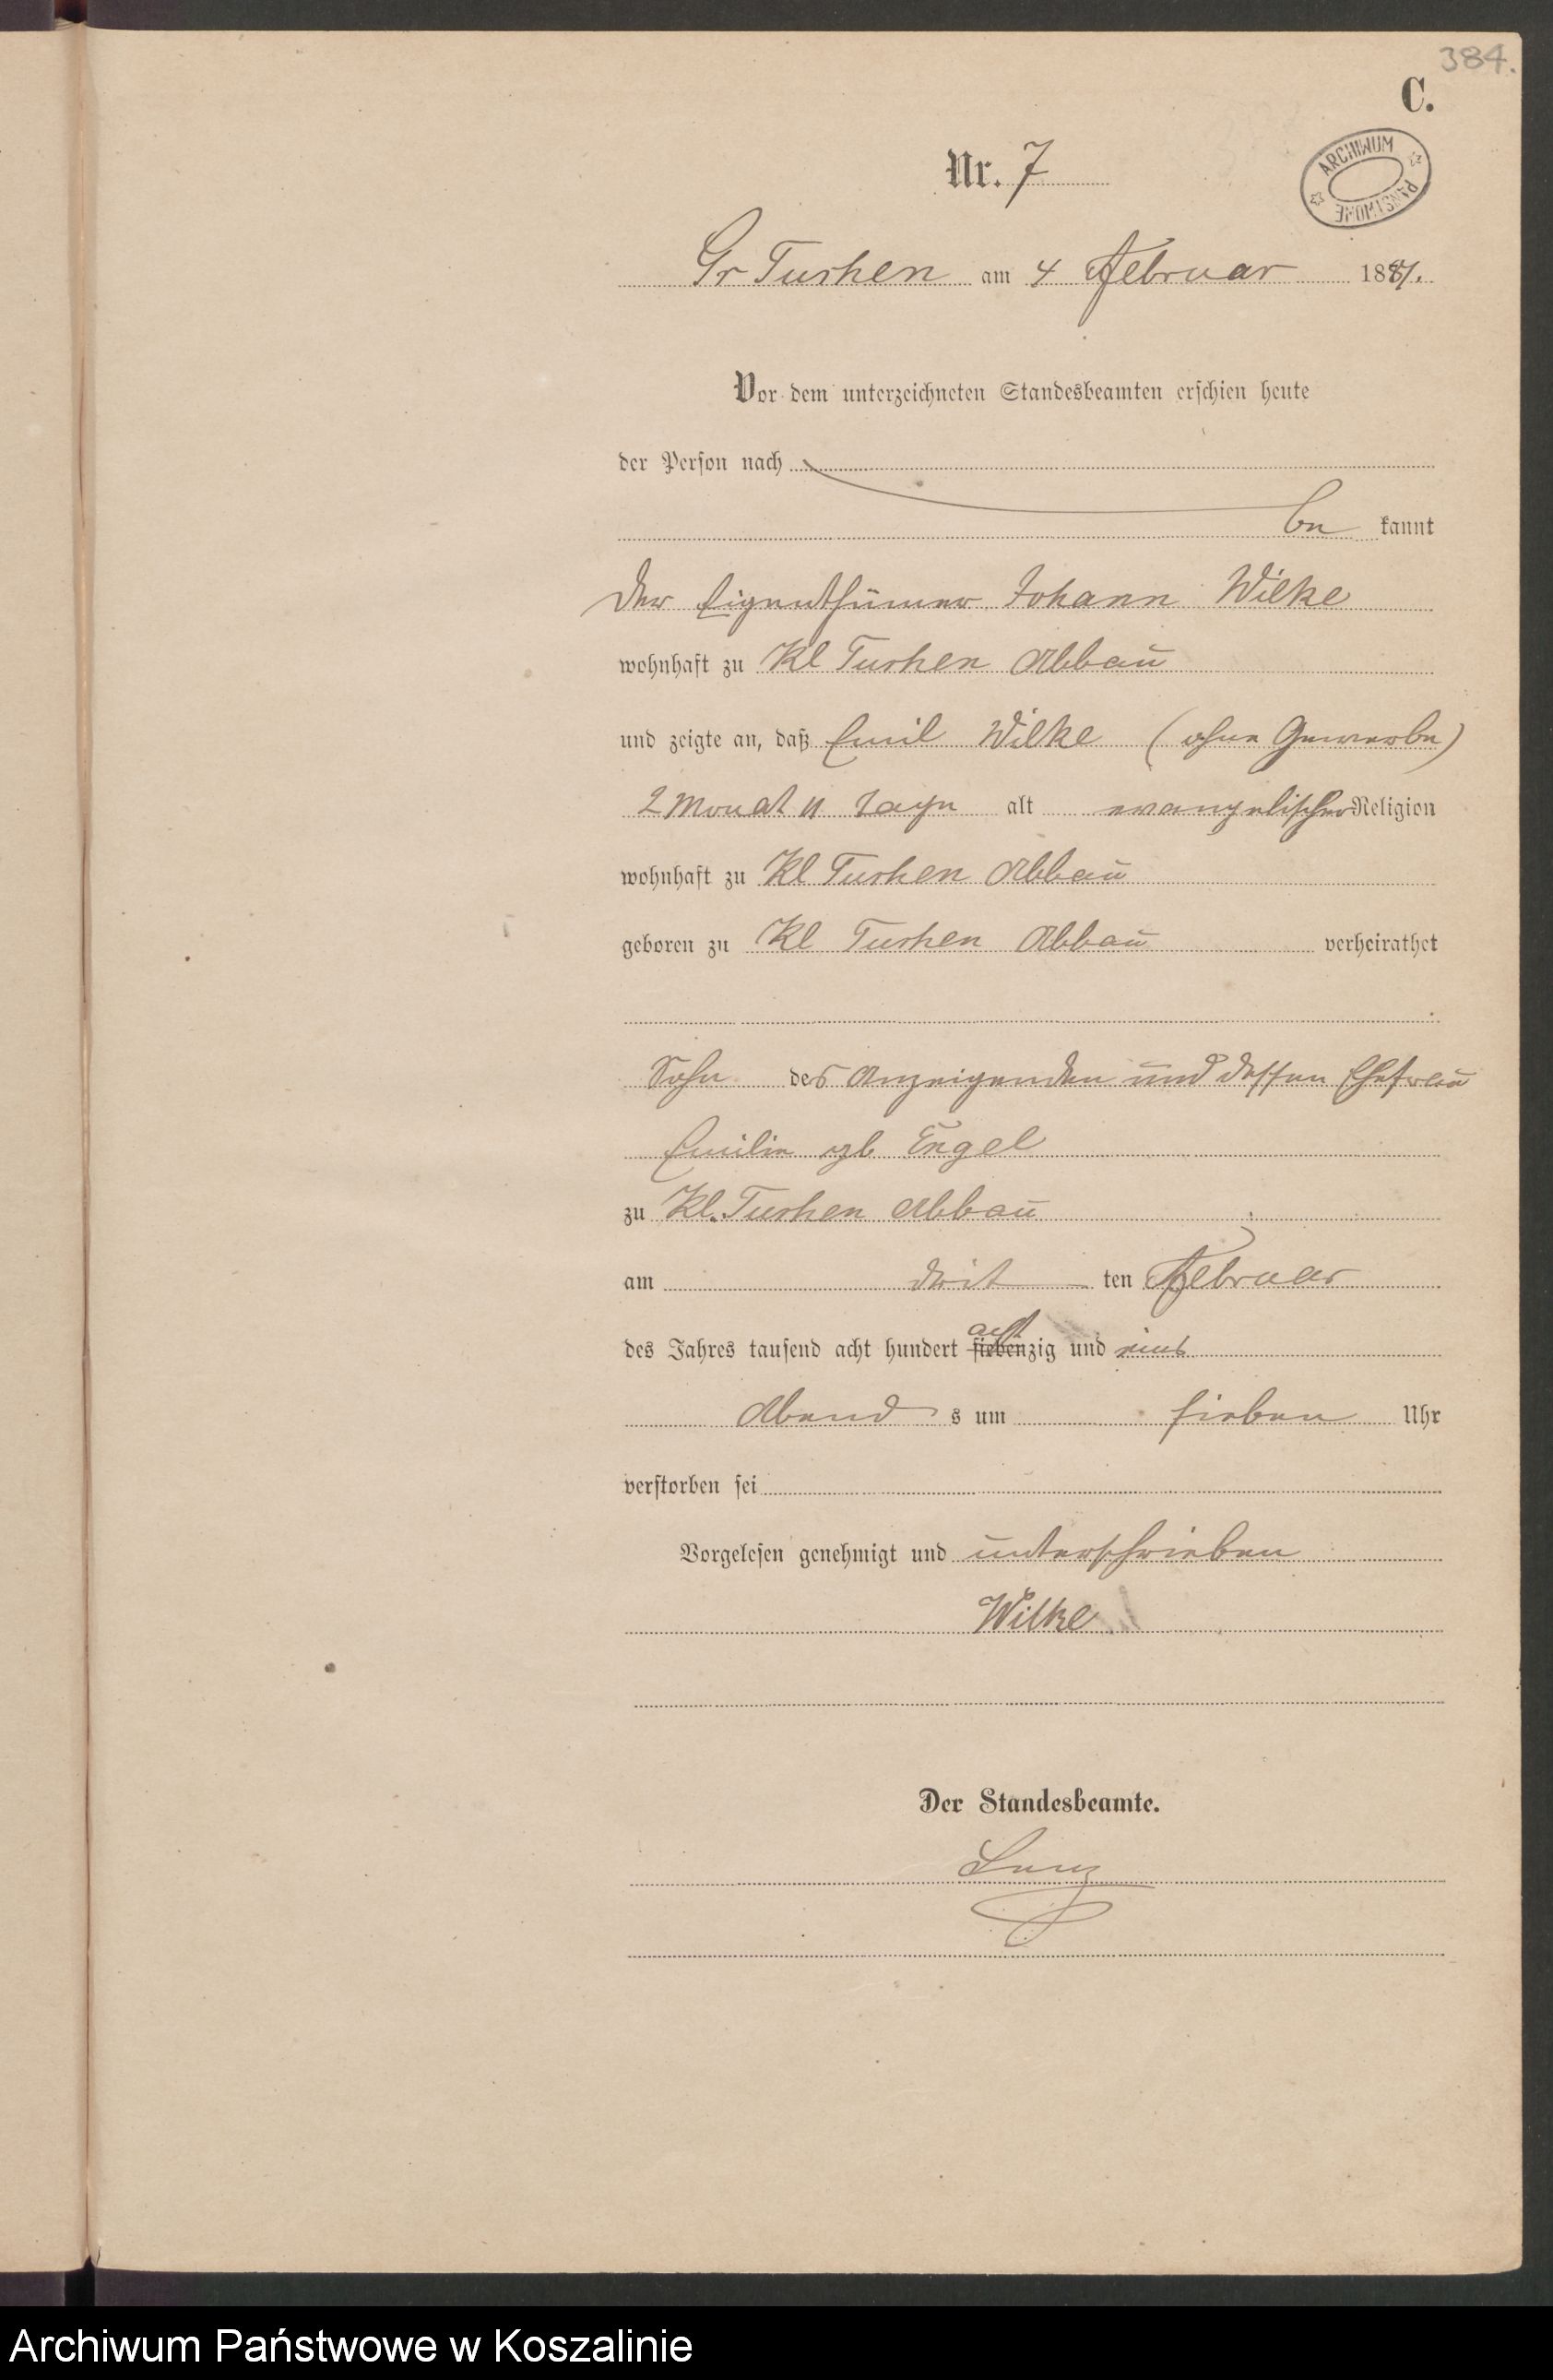 384.
C.
ARCHIWUM PAŃSTWOWE
Nr. 7
Gr Tuchen am 4 Februar 1881.
Vor dem unterzeichneten Standesbeamten erschien heute
der Person nach
be kannt
der Eigenthümer Johann Wilke
wohnhaft zu Kl Tuchen Abbau
und zeigte an, daß Emil Wilke (ohne Gewerbe)
2 Monat 11 Tage alt evangelischer Religion
wohnhaft zu Kl Tuchen Abbau
geboren zu Kl Tuchen Abbau verheirathet
Sohn des Anzeigenden und dessen Ehefrau
Emilie gb Engel
zu Kl. Tuchen Abbau
am drit ten Februar
des Jahres tausend acht hundert siebenzig acht und eins
Abend s um sieben Uhr
verstorben sei
Vorgelesen genehmigt und unterschrieben
Wilke
Der Standesbeamte.
Archiwum Państwowe w Koszalinie